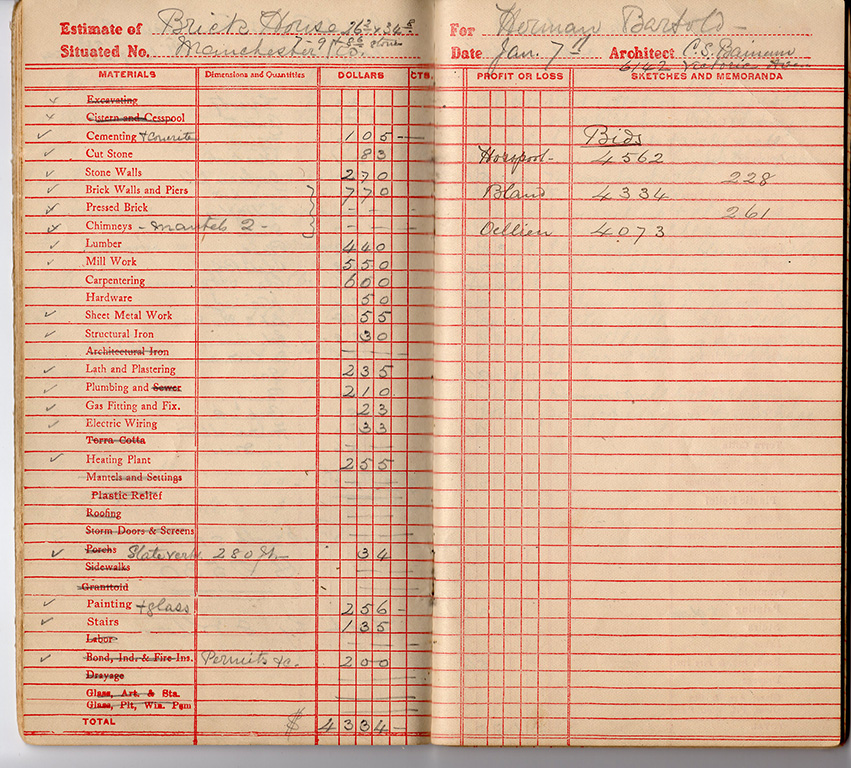 Estimate of Brick House 26² x 34⁸ For Herman Bartold
Situated No. Manchester Rd. stone Date Jan. 7 Architect C.S.
6142 Victoria Ave.
MATERIALS Dimensions and Quantities DOLLARS CTS. PROFIT OR LOSS SKETCHES AND MEMORANDA
Excavating
Cistern and Cesspool
Cementing + Concrete 105 — Bids
Cut Stone 83 4562
Stone Walls 270 228
Brick Walls and Piers 770 Bland 4334
Pressed Brick - - - 261
Chimneys - mantels 2 - - - - 4073
Lumber 440
Mill Work 550
Carpentering 600
Hardware 50
Sheet Metal Work 55
Structural Iron 30
Architectural Iron
Lath and Plastering 235
Plumbing and Sewer 210
Gas Fitting and Fix. 23
Electric Wiring 33
Terra Cotta
Heating Plant 255
Mantels and Settings
Plastic Relief
Roofing
Storm Doors & Screens
Porchs Slate 280 34
Sidewalks
Granitoid
Painting + glass 256 -
Stairs 135
Labor
Bond, Ind. & Fire Ins. Permits &c. 200
Drayage
Glass, Art. & Sta.
Glass, Plt, Win. Psm
TOTAL $ 4334 —